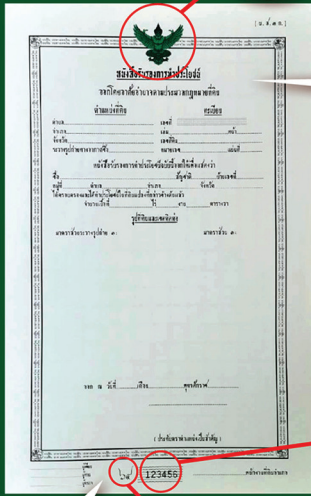 (น.ส.๓ ก.)
หนังสือรับรองการทำประโยชน์
ออกโดยอาศัยอำนาจตามประมวลกฎหมายที่ดิน
ตำแหน่งที่ดิน ทะเบียน
ตำบล เลขที่
อำเภอ เล่ม หน้า
จังหวัด เลขที่ดิน
ระวางรูปถ่ายทางอากาศชื่อ หมายเลข แผ่นที่
หนังสือรับรองการทำประโยชน์ฉบับนี้ออกให้เพื่อแสดงว่า
ชื่อ สัญชาติ บ้านเลขที่
หมู่ที่ ตำบล อำเภอ จังหวัด
จำนวนเนื้อที่ ไร่ งาน ตารางวา
รูปที่ดินและเขตติดต่อ
มาตราส่วนระวางรูปถ่าย ๑: มาตราส่วน ๑:
ออก ณ วันที่ เดือน พุทธศักราช
(ประทับตราตำแหน่งเป็นสำคัญ)
123456